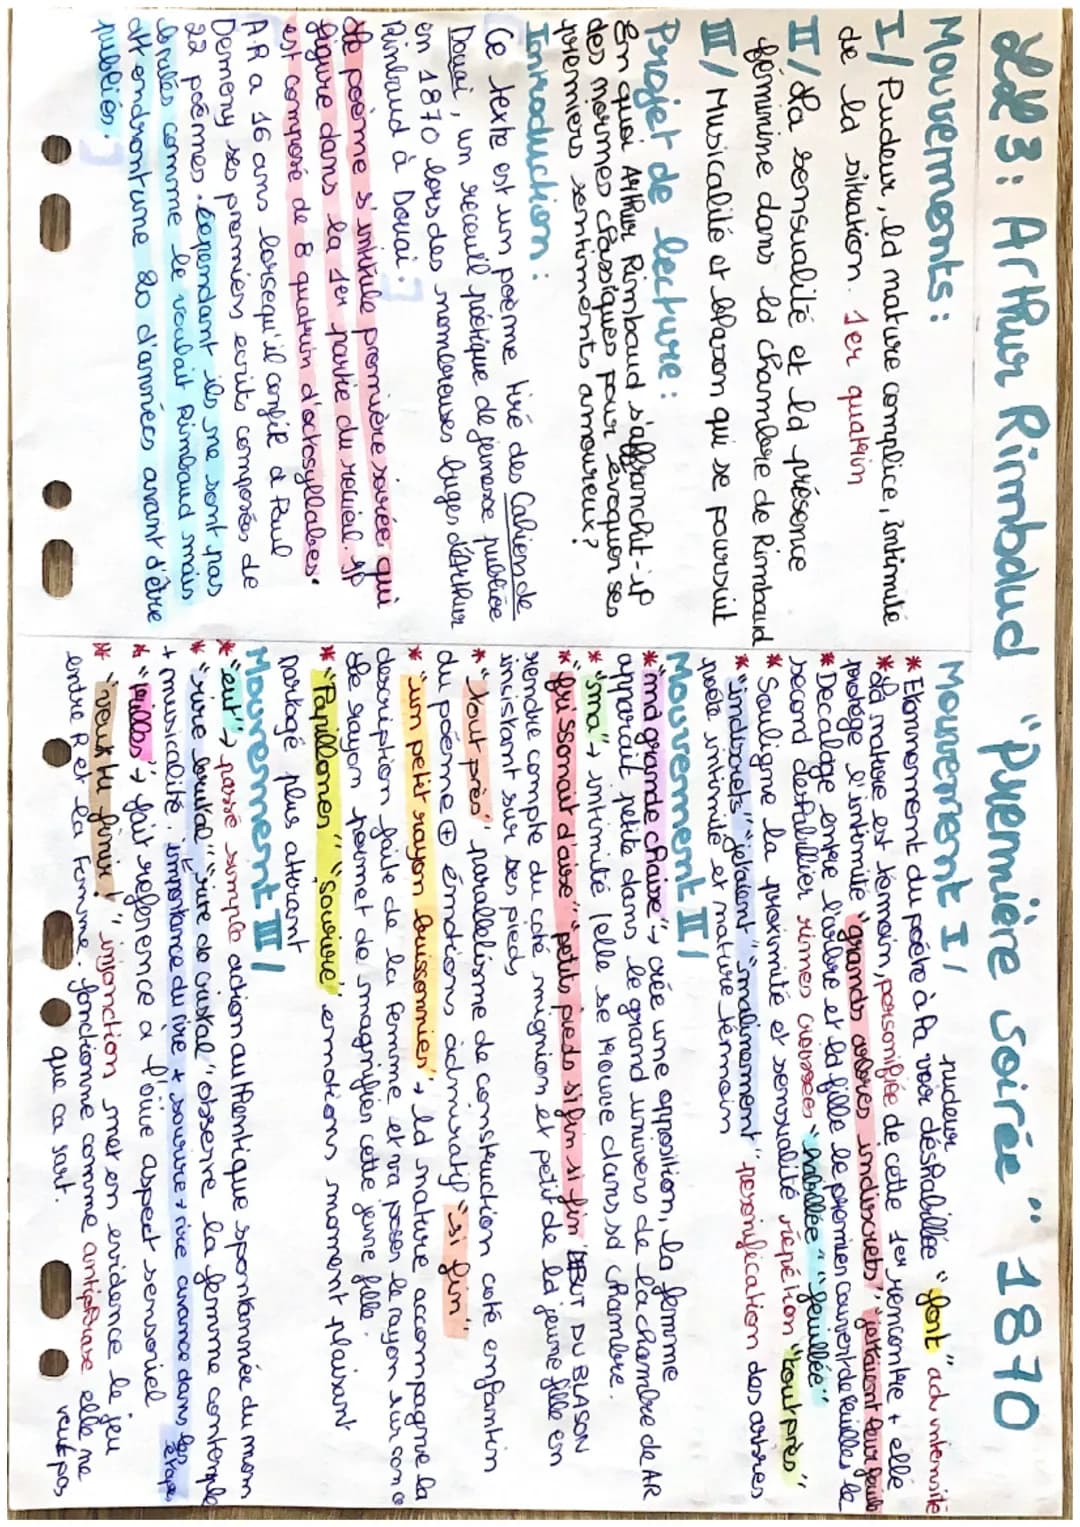 LL 3: Arthur Rimbaud "Première soirée" : 1870
Mouvements :
I/ Pudeur, la nature complice, intimité
de la situation. 1er quatrin
II/ La sensualité et la présence
féminine dans la chambre de Rimbaud
III/ Musicalité et blason qui se poursuit
Projet de lecture :
En quoi Arthur Rimbaud s'affranchit-il
des normes classiques pour évoquer ses
premiers sentiments amoureux?
Introduction :
Ce texte est un poème tiré des Cahiers de
Douai, un recueil poétique de jeunesse publiée
en 1870 lors des nombreuses fuges d'Arthur
Rimbaud à Douai.
Le poème s'intitule première soirée, qui
figure dans la 1er partie du recueil. Il
est composé de 8 quatrin d'octosyllabes.
AR a 16 ans lorsequ'il confit à Paul
Demeny ses premiers ecrits composés de
22 poèmes. Cependant ils ne sont pas
brulés comme le voulait Rimbaud mais
attendront une 20 d'années avant d'être
publiés.
Mouvement I/
pudeur
* Etonnement du poète à la voir déshabillée "font" adv intensité
* La nature est témoin, personifiée de cette 1er rencontre + elle
protège l'intimité "grands arbres indiscrets", "jettaient leur feuille
* Decalage entre l'arbre et la fille le premier couvert de feuilles le
second deshabillier rimes croisées "habillée" "feuillée"
* Souligne la proximité et sensualité répétition "tout près"
* "indiscrets" "jetaient" "malinement" personification des arbres
poète intimité et nature témoin
Mouvement II/
* "ma grande chaise" → crée une opposition, la femme
apparait petite dans le grand univers de la chambre de AR
* "ma" → intimité (elle se trouve dans sa chambre.
* "frissonait d'aise" "petits pieds si fin si fin" DEBUT DU BLASON
rendre compte du coté mignion et petit de la jeune fille en
insistant sur ses pieds
* "tout près" parallélisme de construction coté enfantin
du poème ⊕ émotions admiratif "si fin"
* "un petit rayon buissonnier" → la nature accompagne la
description faite de la femme et va poser le rayon sur
Le rayon permet de magnifier cette jeune fille.
* "Papillonner" "sourire" emotions, moment plaisant
partagé plus attirant
Mouvement III/
* "eut" → passé simple action authentique spontannée du mom
* "rire brutal" "rire de cristal" observe la femme contemple
+ musicalité. importance du rire + sourire + rire avance dans les
étapes
* "trilles" → fait reference à l'ouïe aspect sensoriel
* "veux tu finir!" injonction met en evidence le jeu
entre R et la Femme. fonctionne comme antiphrase elle ne
veut pas
que ca sart.